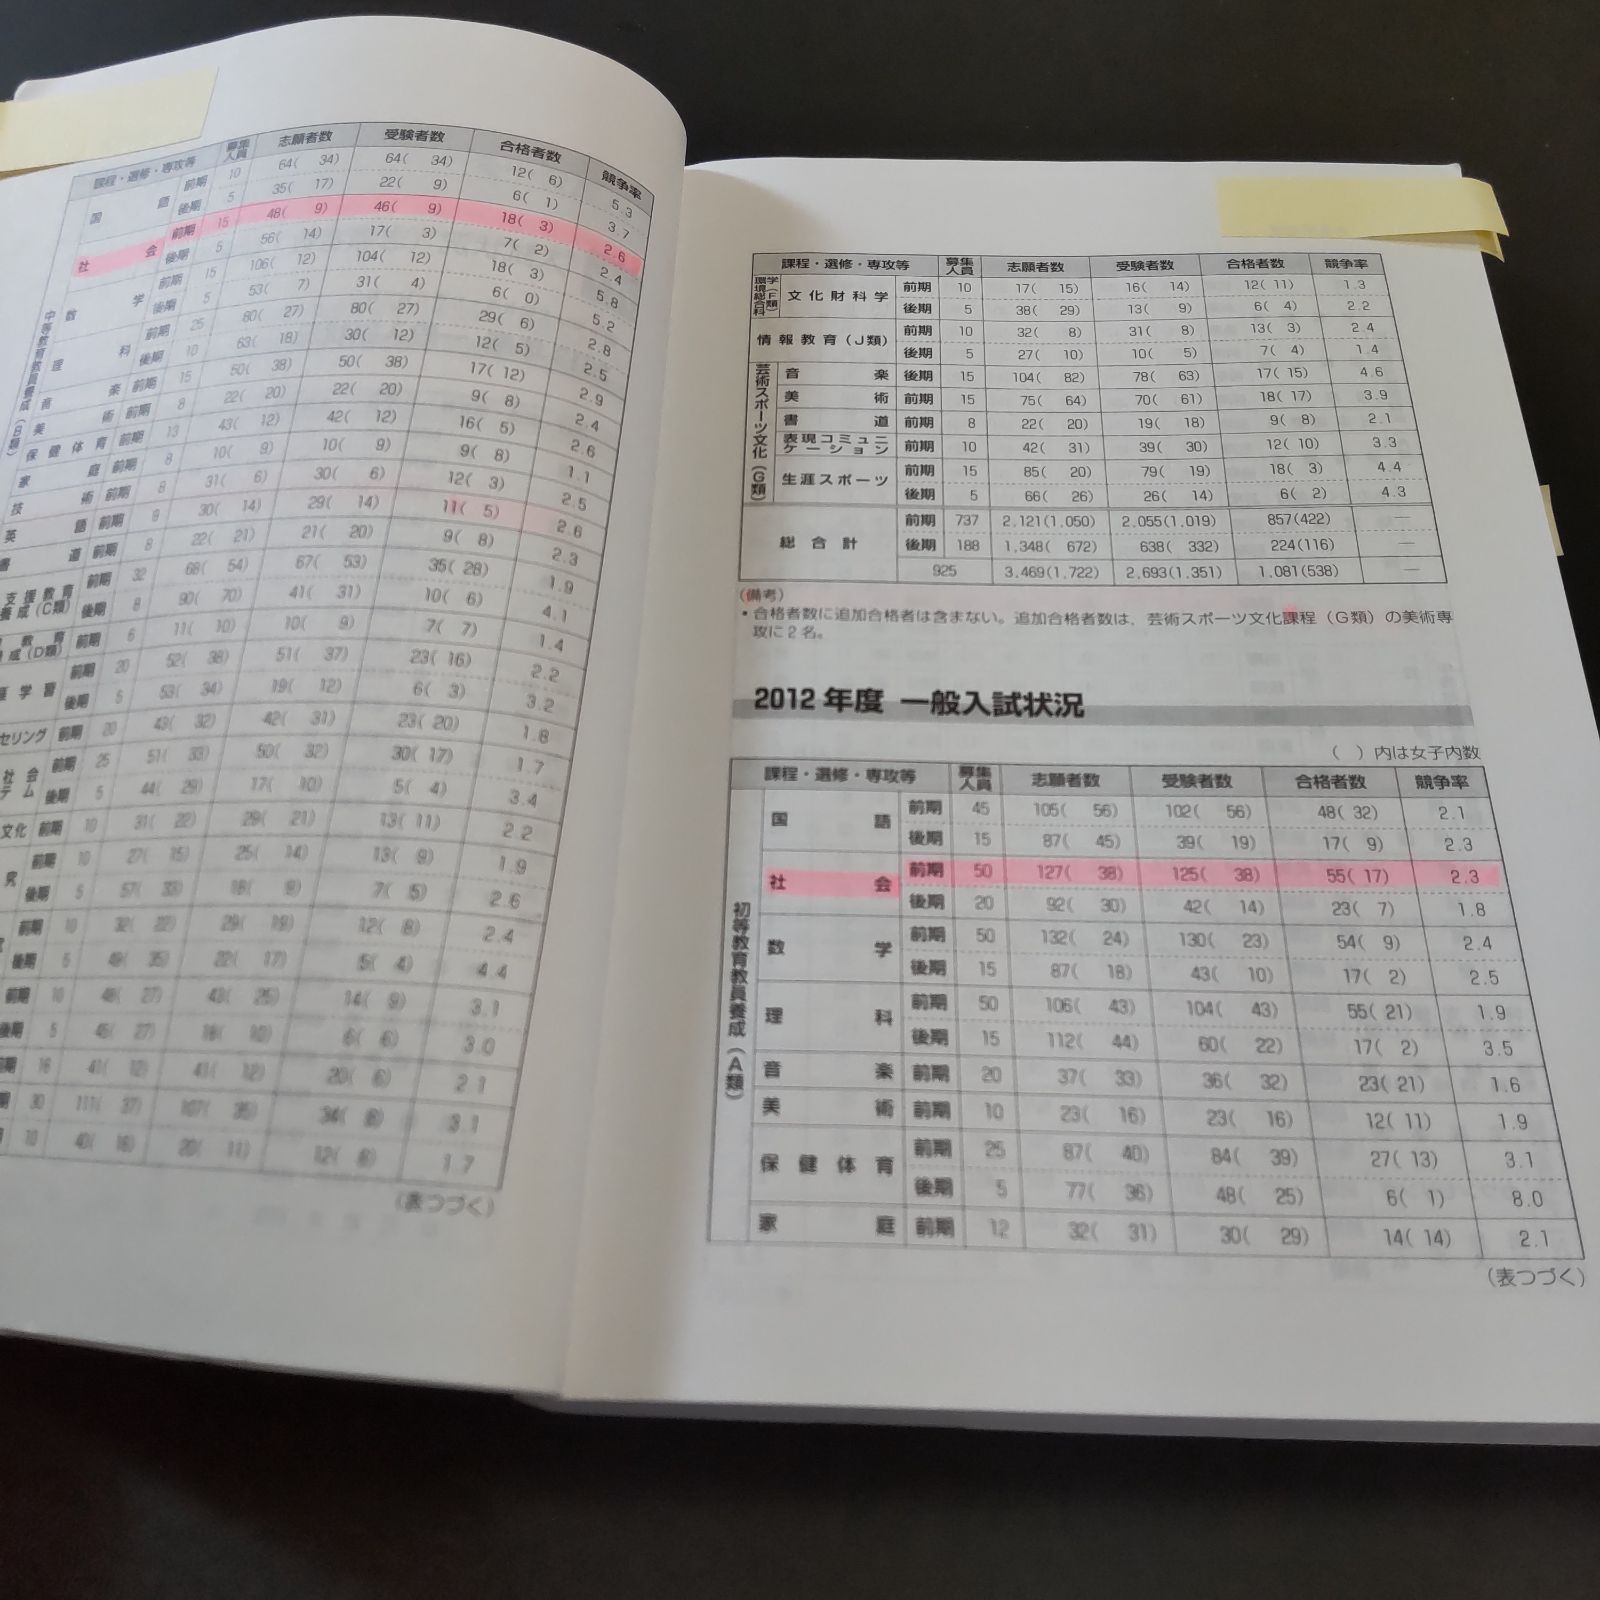 課程・選修・専攻等 募集人員 志願者数 受験者数 合格者数 競争率
中等教育教員養成(B類)
国語 前期 10 64( 34) 64( 34) 12( 6) 5.3
後期 5 35( 17) 22( 9) 6( 1) 3.7
社会 前期 15 48( 9) 46( 9) 18( 3) 2.6
後期 5 56( 14) 17( 3) 7( 2) 2.4
数学 前期 15 106( 12) 104( 12) 18( 3) 5.8
後期 5 53( 7) 31( 4) 6( 0) 5.2
理科 前期 25 80( 27) 80( 27) 29( 6) 2.8
後期 10 63( 18) 30( 12) 12( 5) 2.5
音楽 前期 15 50( 38) 50( 38) 17( 12) 2.9
美術 前期 8 22( 20) 22( 20) 9( 8) 2.4
保健体育 前期 13 43( 12) 42( 12) 16( 5) 2.6
家庭 前期 8 10( 9) 10( 9) 9( 8) 1.1
技術 前期 8 31( 6) 30( 6) 12( 3) 2.5
英語 前期 8 30( 14) 29( 14) 11( 5) 2.6
書道 前期 8 22( 21) 21( 20) 9( 8) 2.3
支援教育 養成(C類) 前期 32 68( 54) 67( 53) 35( 28) 1.9
後期 8 90( 70) 41( 31) 10( 6) 4.1
教育 成(D類) 前期 6 11( 10) 10( 9) 7( 7) 1.4
学習 前期 20 52( 38) 51( 37) 23( 16) 2.2
後期 5 53( 34) 19( 12) 6( 3) 3.2
セリング 前期 20 43( 32) 42( 31) 23( 20) 1.8
社会 テム 前期 25 51( 33) 50( 32) 30( 17) 1.7
後期 5 44( 29) 17( 10) 5( 4) 3.4
文化 前期 10 31( 22) 29( 21) 13( 11) 2.2
究 前期 10 27( 15) 25( 14) 13( 9) 1.9
後期 5 57( 33) 18( 9) 7( 5) 2.6
前期 10 32( 22) 29( 19) 12( 8) 2.4
後期 5 49( 35) 22( 17) 5( 4) 4.4
前期 10 48( 27) 43( 25) 14( 9) 3.1
後期 5 45( 27) 18( 10) 6( 6) 3.0
期 16 41( 12) 41( 12) 20( 6) 2.1
期 30 111( 37) 107( 35) 34( 8) 3.1
10 40( 16) 20( 11) 12( 8) 1.7
(表つづく)
課程・選修・専攻等 募集人員 志願者数 受験者数 合格者数 競争率
環境総合科学(F類) 文化財科学 前期 10 17( 15) 16( 14) 12( 11) 1.3
後期 5 38( 29) 13( 9) 6( 4) 2.2
情報教育(J類) 前期 10 32( 8) 31( 8) 13( 3) 2.4
後期 5 27( 10) 10( 5) 7( 4) 1.4
芸術スポーツ文化(G類)
音楽 後期 15 104( 82) 78( 63) 17( 15) 4.6
美術 前期 15 75( 64) 70( 61) 18( 17) 3.9
書道 前期 8 22( 20) 19( 18) 9( 8) 2.1
表現コミュニケーション 前期 10 42( 31) 39( 30) 12( 10) 3.3
生涯スポーツ 前期 15 85( 20) 79( 19) 18( 3) 4.4
後期 5 66( 26) 26( 14) 6( 2) 4.3
総合計 前期 737 2,121(1,050) 2,055(1,019) 857(422) —
後期 188 1,348( 672) 638( 332) 224(116) —
925 3,469(1,722) 2,693(1,351) 1,081(538) —
(備考)
・合格者数に追加合格者は含まない。追加合格者数は、芸術スポーツ文化課程(G類)の美術専
攻に2名。
2012年度 一般入試状況
( )内は女子内数
課程・選修・専攻等 募集人員 志願者数 受験者数 合格者数 競争率
初等教育教員養成(A類)
国語 前期 45 105( 56) 102( 56) 48( 32) 2.1
後期 15 87( 45) 39( 19) 17( 9) 2.3
社会 前期 50 127( 38) 125( 38) 55( 17) 2.3
後期 20 92( 30) 42( 14) 23( 7) 1.8
数学 前期 50 132( 24) 130( 23) 54( 9) 2.4
後期 15 87( 18) 43( 10) 17( 2) 2.5
理科 前期 50 106( 43) 104( 43) 55( 21) 1.9
後期 15 112( 44) 60( 22) 17( 2) 3.5
音楽 前期 20 37( 33) 36( 32) 23( 21) 1.6
美術 前期 10 23( 16) 23( 16) 12( 11) 1.9
保健体育 前期 25 87( 40) 84( 39) 27( 13) 3.1
後期 5 77( 36) 48( 25) 6( 1) 8.0
家庭 前期 12 32( 31) 30( 29) 14( 14) 2.1
(表つづく)